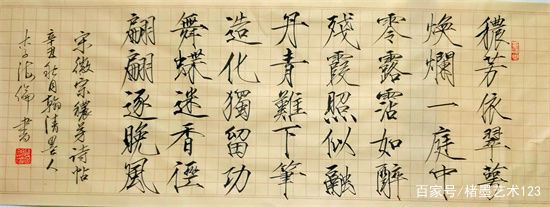 穠芳依翠萼
煥爛一庭中
零露霑如醉
殘霞照似融
丹青難下筆
造化獨留功
舞蝶迷香徑
翩翩逐晚風
宋徽宗穠芳诗帖
辛丑秋月翰清墨人
海倫書
百家号/楮墨艺术123